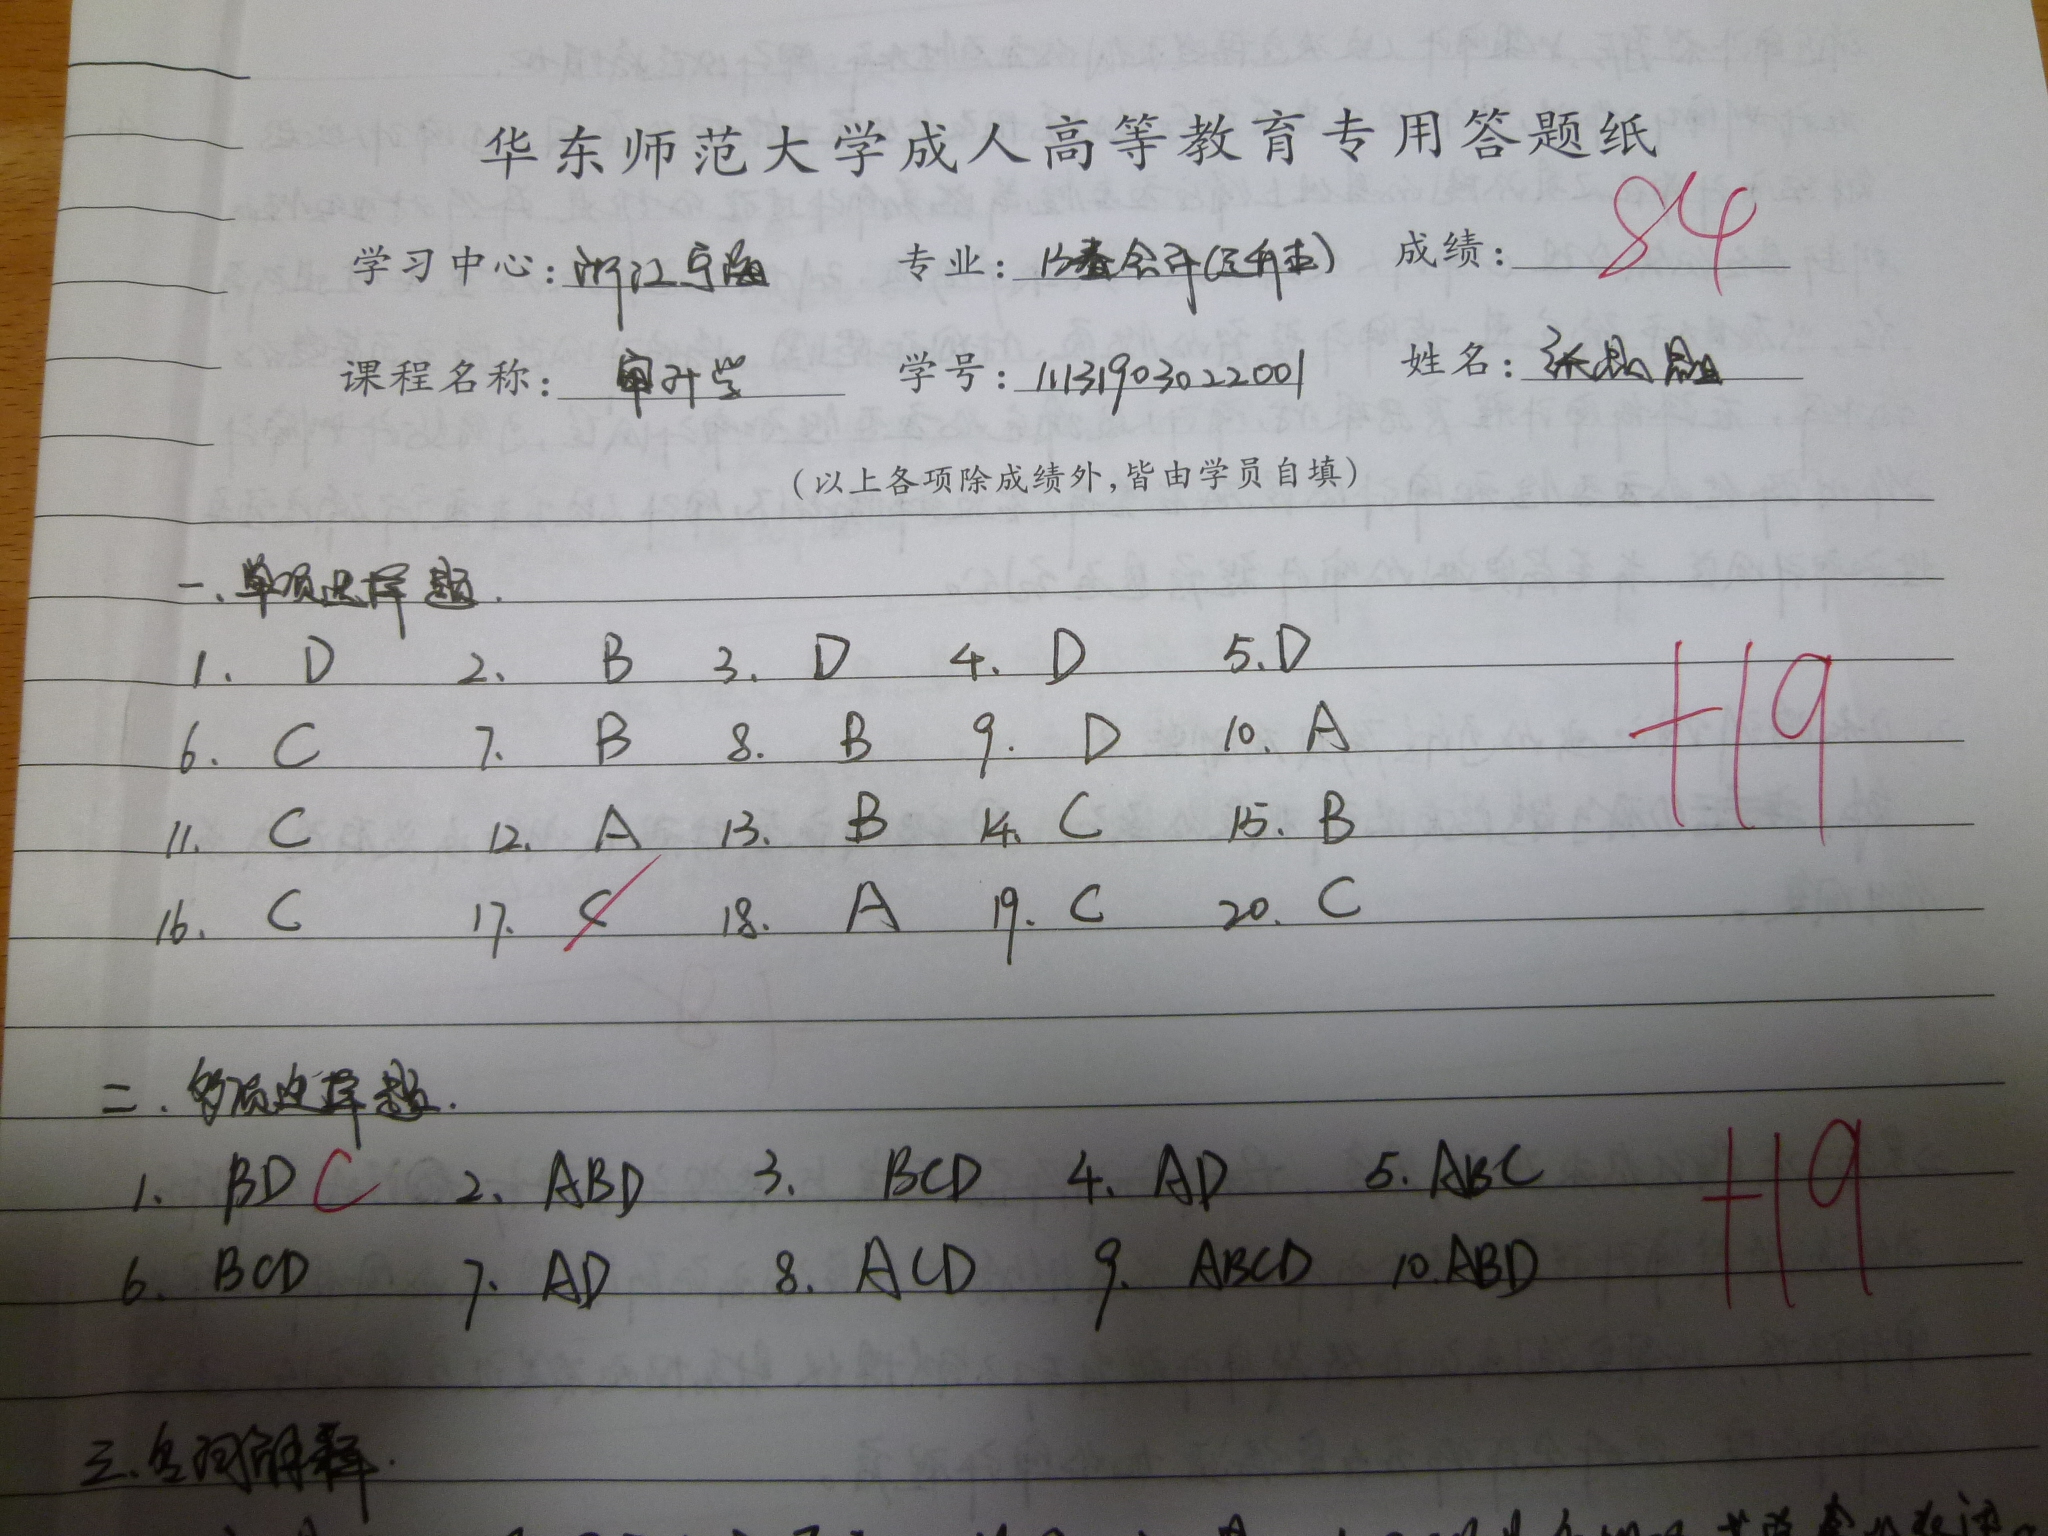 华东师范大学成人高等教育专用答题纸
学习中心: 浙江宁海 专业: 13春会计(专升本) 成绩: 84
课程名称: 审计学 学号: 11131903022001 姓名: 张
(以上各项除成绩外,皆由学员自填)
一.单项选择题.
1. D 2. B 3. D 4. D 5. D
6. C 7. B 8. B 9. D 10. A
+19
11. C 12. A 13. B 14. C 15. B
16. C 17. C 18. A 19. C 20. C
二.多项选择题.
1. BD C 2. ABD 3. BCD 4. AD 5. ABC
+19
6. BCD 7. AD 8. ACD 9. ABCD 10. ABD
三.名词解释.